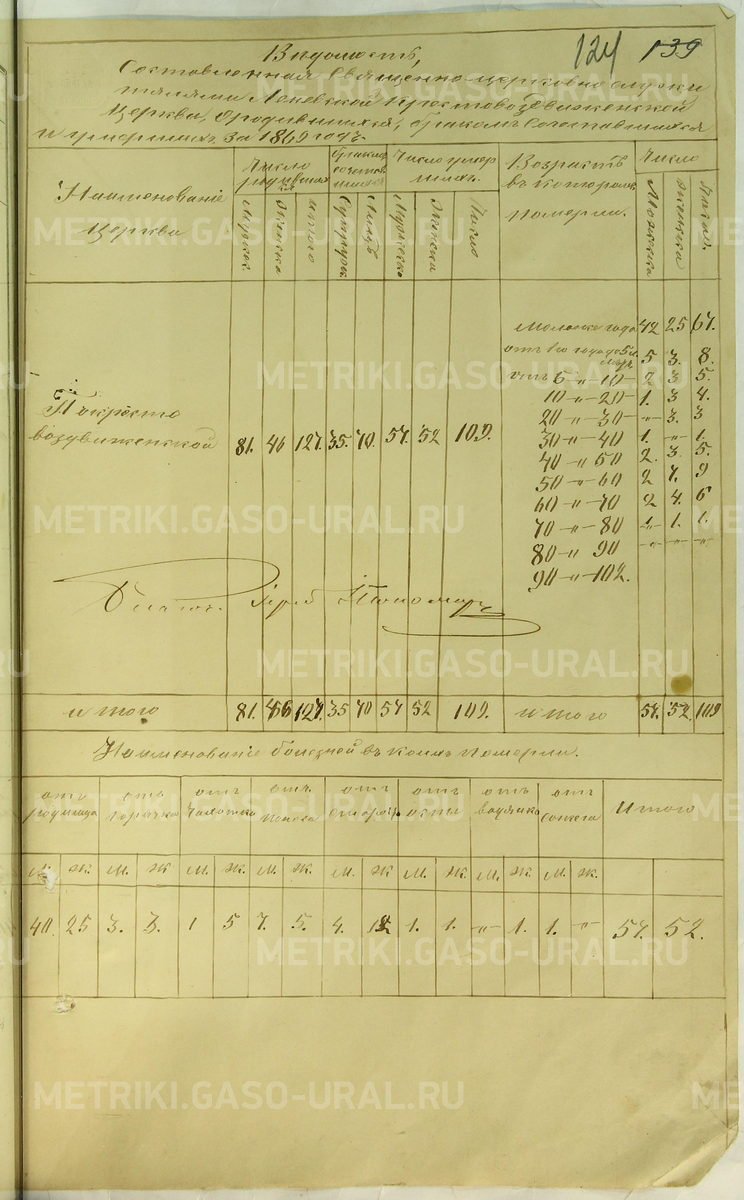 124 139
Вѣдомость,
Составленная Священно-церковно служи
телями Крестовоздвиженской
Церкви, О родившихся, бракомъ сочетавшихся
и умершихъ за 1869 годъ.
Наименованіе церкви
Число родившихся
Число умерших.
Возрастъ въ которомъ померли.
Число
Мужска Женска Итого Супруж. Лицъ Мужеска Женска Число Мужеска Женска Итого.
Младше года 42 25 67.
5 3. 8.
отъ 5 „ 10 2 3 5.
10 – „ – 20 1. 3 4.
20 – „ – 30 „ 3. 3
30 – „ – 40 1. „ 1.
40 „ 50 2. 3. 5.
50 – „ – 60 2 7. 9
60 – „ – 70 2 4. 6
70 – „ – 80 „ 1. 1.
80 – „ 90 „ „ „
90 – „ – 102.
воздвиженской 81. 46 127. 35. 70. 57. 52 109.
Пономарь
итого 81. 46 127. 35 70 57 52 109. итого 57. 52. 109
Наименованіе болѣзней въ коихъ померли.
отъ родимца
отъ горячки
отъ чахотки
отъ поноса
отъ старост.
отъ оспы
отъ водянки
отъ
Итого
м. ж. м. ж м. ж. м. ж. м. ж м. ж. м. ж. м. ж.
40. 25 3. 3. 1 5 7. 5. 4. 12 1. 1. „ 1. 1. „ 57. 52.
METRIKI.GASO-URAL.RU